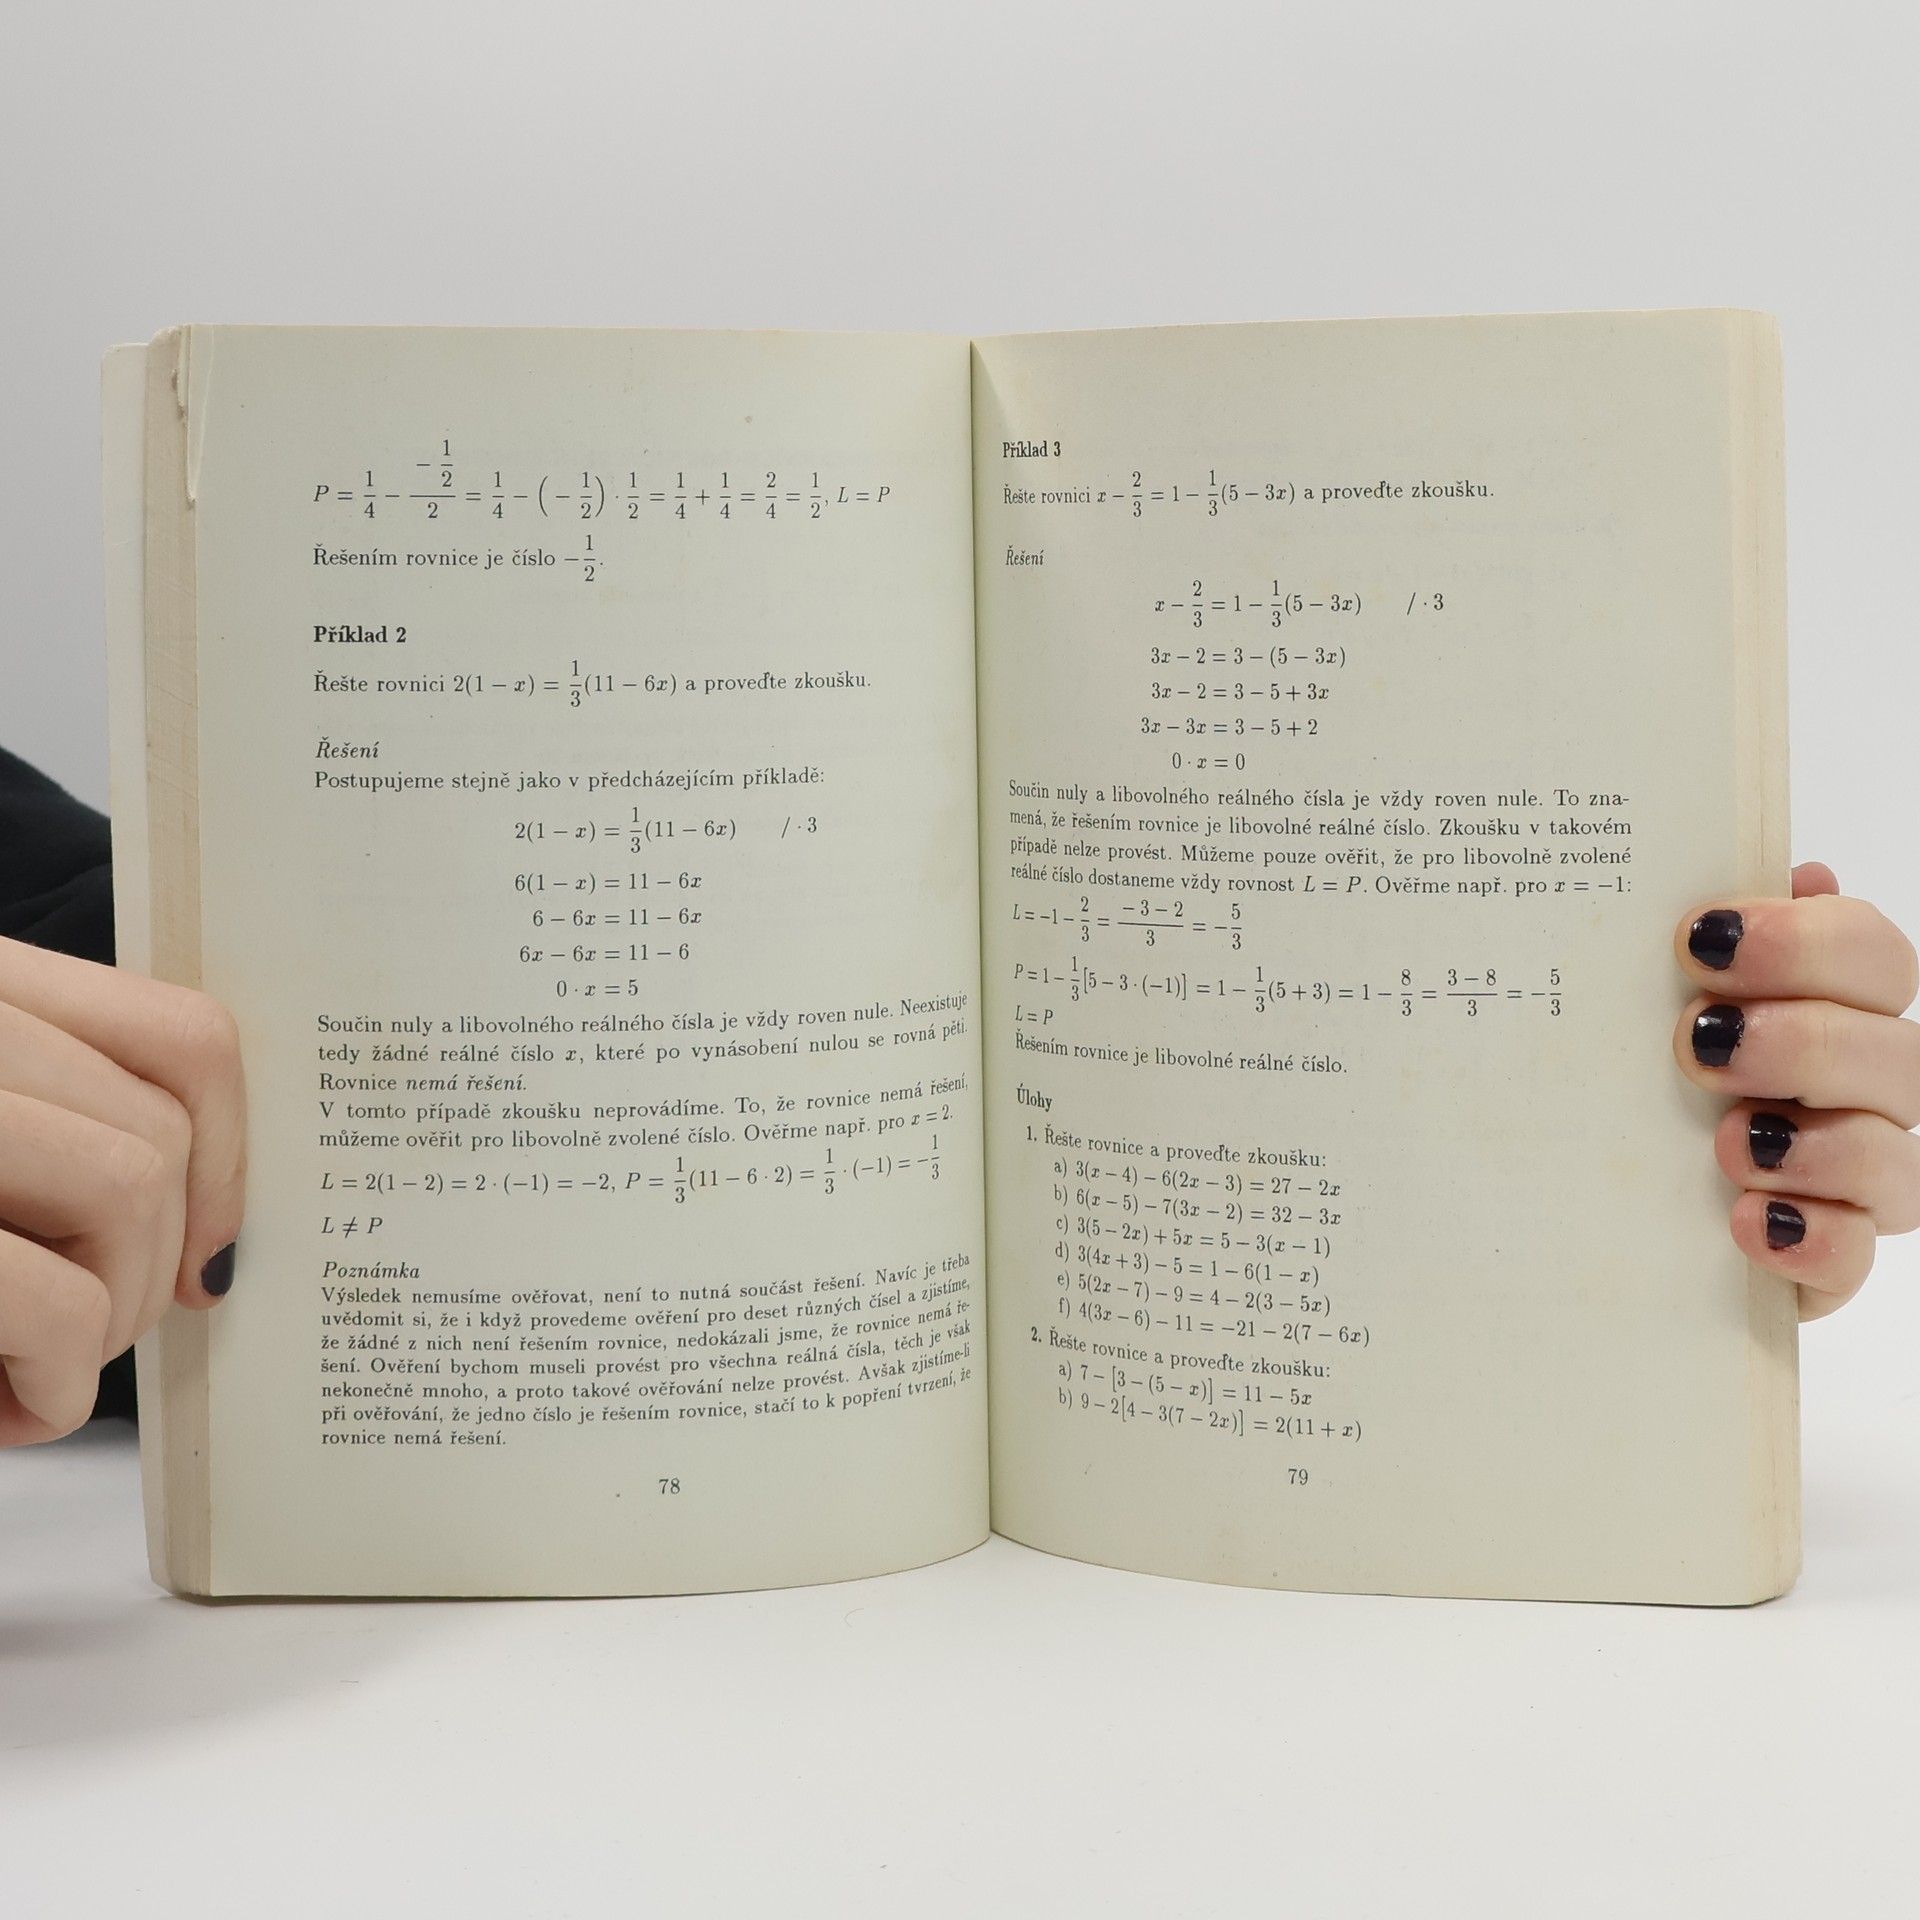 P = 1/4 − (−1/2)/2 = 1/4 − (−1/2) · 1/2 = 1/4 + 1/4 = 2/4 = 1/2, L = P
Řešením rovnice je číslo −1/2.
Příklad 2
Řešte rovnici 2(1 − x) = 1/3(11 − 6x) a proveďte zkoušku.
Řešení
Postupujeme stejně jako v předcházejícím příkladě:
2(1 − x) = 1/3(11 − 6x) / · 3
6(1 − x) = 11 − 6x
6 − 6x = 11 − 6x
6x − 6x = 11 − 6
0 · x = 5
Součin nuly a libovolného reálného čísla je vždy roven nule. Neexistuje
tedy žádné reálné číslo x, které po vynásobení nulou se rovná pěti.
Rovnice nemá řešení.
V tomto případě zkoušku neprovádíme. To, že rovnice nemá řešení,
můžeme ověřit pro libovolně zvolené číslo. Ověřme např. pro x = 2.
L = 2(1 − 2) = 2 · (−1) = −2, P = 1/3(11 − 6 · 2) = 1/3 · (−1) = −1/3
L ≠ P
Poznámka
Výsledek nemusíme ověřovat, není to nutná součást řešení. Navíc je třeba
uvědomit si, že i když provedeme ověření pro deset různých čísel a zjistíme,
že žádné z nich není řešením rovnice, nedokázali jsme, že rovnice nemá ře-
šení. Ověření bychom museli provést pro všechna reálná čísla, těch je však
nekonečně mnoho, a proto takové ověřování nelze provést. Avšak zjistíme-li
při ověřování, že jedno číslo je řešením rovnice, stačí to k popření tvrzení, že
rovnice nemá řešení.
78
Příklad 3
Řešte rovnici x − 2/3 = 1 − 1/3(5 − 3x) a proveďte zkoušku.
Řešení
x − 2/3 = 1 − 1/3(5 − 3x) / · 3
3x − 2 = 3 − (5 − 3x)
3x − 2 = 3 − 5 + 3x
3x − 3x = 3 − 5 + 2
0 · x = 0
Součin nuly a libovolného reálného čísla je vždy roven nule. To zna-
mená, že řešením rovnice je libovolné reálné číslo. Zkoušku v takovém
případě nelze provést. Můžeme pouze ověřit, že pro libovolně zvolené
reálné číslo dostaneme vždy rovnost L = P. Ověřme např. pro x = −1:
L = −1 − 2/3 = (−3 − 2)/3 = −5/3
P = 1 − 1/3[5 − 3 · (−1)] = 1 − 1/3(5 + 3) = 1 − 8/3 = (3 − 8)/3 = −5/3
L = P
Řešením rovnice je libovolné reálné číslo.
Úlohy
1. Řešte rovnice a proveďte zkoušku:
a) 3(x − 4) − 6(2x − 3) = 27 − 2x
b) 6(x − 5) − 7(3x − 2) = 32 − 3x
c) 3(5 − 2x) + 5x = 5 − 3(x − 1)
d) 3(4x + 3) − 5 = 1 − 6(1 − x)
e) 5(2x − 7) − 9 = 4 − 2(3 − 5x)
f) 4(3x − 6) − 11 = −21 − 2(7 − 6x)
2. Řešte rovnice a proveďte zkoušku:
a) 7 − [3 − (5 − x)] = 11 − 5x
b) 9 − 2[4 − 3(7 − 2x)] = 2(11 + x)
79